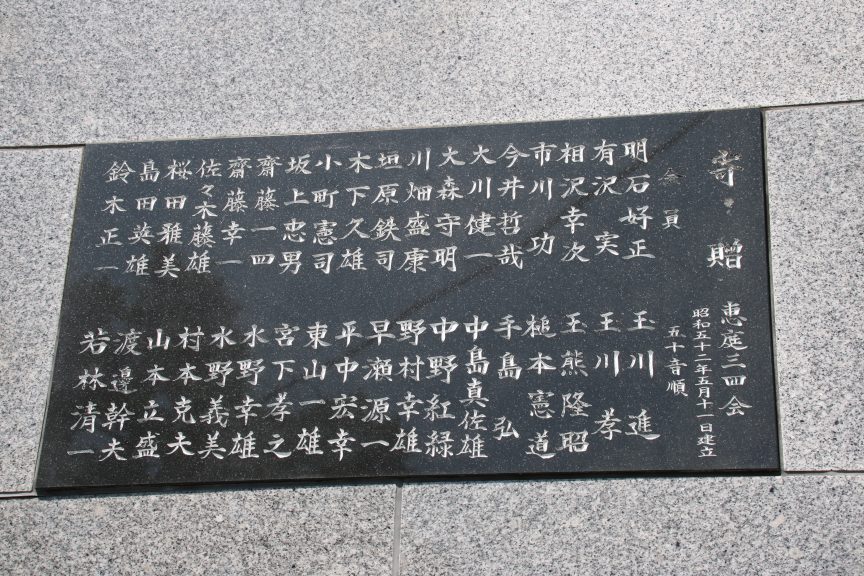 寄贈 恵庭三四会
昭和五十二年五月十一日建立
会員 五十音順
明石好正
有沢実
相沢幸次
市川功
今井哲哉
大川健一
大森守明
川畑盛康
垣原鉄司
木下久雄
小町憲司
坂上忠男
齋藤一四
齋藤幸一
佐々木藤雄
桜田雅美
島田英雄
鈴木正一
玉川進
玉川孝
玉熊隆昭
槌本憲道
手島弘
中島真佐雄
中野紅緑
野村幸雄
早瀬源一
平中宏幸
東山一雄
宮下孝之
水野幸雄
水野義美
村本克夫
山本立盛
渡邊幹夫
若林清一